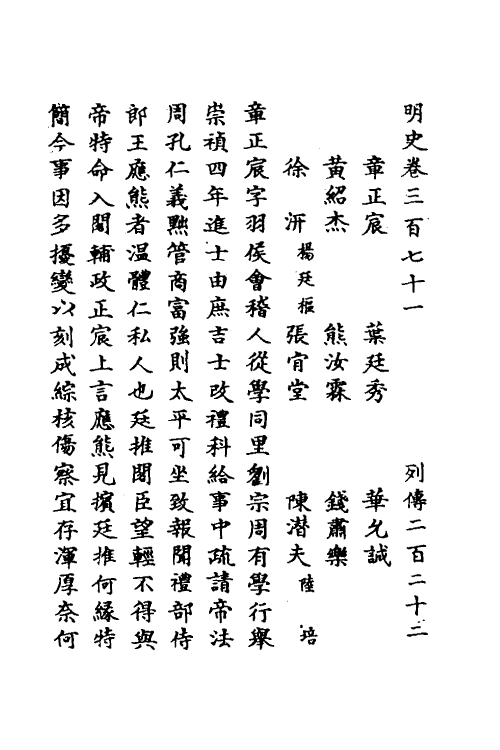 明史卷三百七十一　列傳二百二十二
章正宸　葉廷秀　華允誠
黃紹杰　熊汝霖　錢肅樂
徐汧楊廷樞　張肯堂　陳潛夫陸培
章正宸字羽侯會稽人從學同里劉宗周有學行舉
崇禎四年進士由庶吉士改禮科給事中疏請帝法
周孔仁義黜管商富強則太平可坐致報聞禮部侍
郎王應熊者温體仁私人也廷推閣臣望輕不得與
帝特命入閣輔政正宸上言應熊見擯廷推何緣特
簡今事因多擾變以刻成綜核傷察宜存渾厚奈何